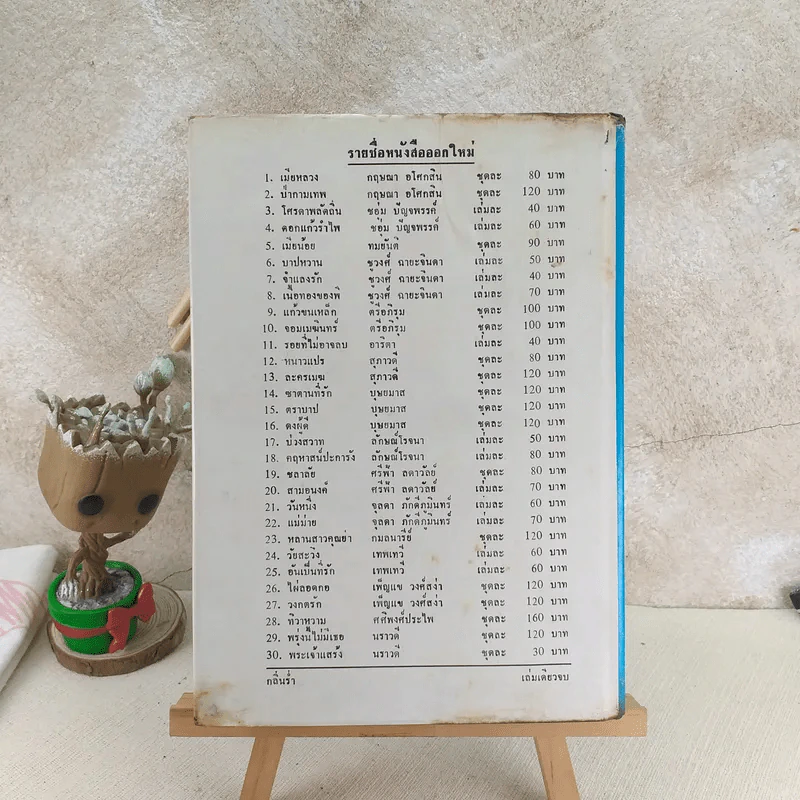 รายชื่อหนังสือออกใหม่
1. เมียหลวง กฤษณา อโศกสิน ชุดละ 80 บาท
2. ป่ากามเทพ กฤษณา อโศกสิน ชุดละ 120 บาท
3. โศรดาพลัดถิ่น ชอุ่ม ปัญจพรรค์ เล่มละ 40 บาท
4. ดอกแก้วรำไพ ชอุ่ม ปัญจพรรค์ เล่มละ 60 บาท
5. เมียน้อย ทมยันตี ชุดละ 90 บาท
6. บาปหวาน ชูวงศ์ ฉายะจินดา เล่มละ 50 บาท
7. จำแลงรัก ชูวงศ์ ฉายะจินดา เล่มละ 40 บาท
8. เนื้อทองของพี่ ชูวงศ์ ฉายะจินดา เล่มละ 70 บาท
9. แก้วขนเหล็ก ตรีอภิรุม ชุดละ 100 บาท
10. จอมเมฆินทร์ ตรีอภิรุม ชุดละ 100 บาท
11. รอยที่ไม่อาจลบ อาริตา เล่มละ 40 บาท
12. หนาวแปร สุภาวดี ชุดละ 80 บาท
13. ละครเมฆ สุภาวดี ชุดละ 120 บาท
14. ซาตานที่รัก บุษยมาส ชุดละ 120 บาท
15. ตราบาป บุษยมาส ชุดละ 120 บาท
16. ดงผู้ดี บุษยมาส ชุดละ 120 บาท
17. บ่วงสวาท ลักษณ์โรจนา เล่มละ 50 บาท
18. คฤหาสน์ปะการัง ลักษณ์โรจนา เล่มละ 80 บาท
19. ชลาลัย ศรีฟ้า ลดาวัลย์ ชุดละ 80 บาท
20. สามอนงค์ ศรีฟ้า ลดาวัลย์ เล่มละ 70 บาท
21. วันหนึ่ง จุลดา ภักดีภูมินทร์ เล่มละ 60 บาท
22. แม่ม่าย จุลดา ภักดีภูมินทร์ เล่มละ 70 บาท
23. หลานสาวคุณย่า กมลนารีย์ ชุดละ 120 บาท
24. วัยสะวิง เทพเทวี เล่มละ 60 บาท
25. อันเป็นที่รัก เทพเทวี เล่มละ 60 บาท
26. ไผ่ลอดกอ เพ็ญแข วงศ์สง่า ชุดละ 120 บาท
27. วงกตรัก เพ็ญแข วงศ์สง่า ชุดละ 120 บาท
28. ทิวาหวาม ศศิพงศ์ประไพ ชุดละ 160 บาท
29. พรุ่งนี้ไม่มีเธอ นราวดี ชุดละ 120 บาท
30. พระเจ้าแสร้ง นราวดี ชุดละ 30 บาท
กลิ่นร่ำ เล่มเดียวจบ